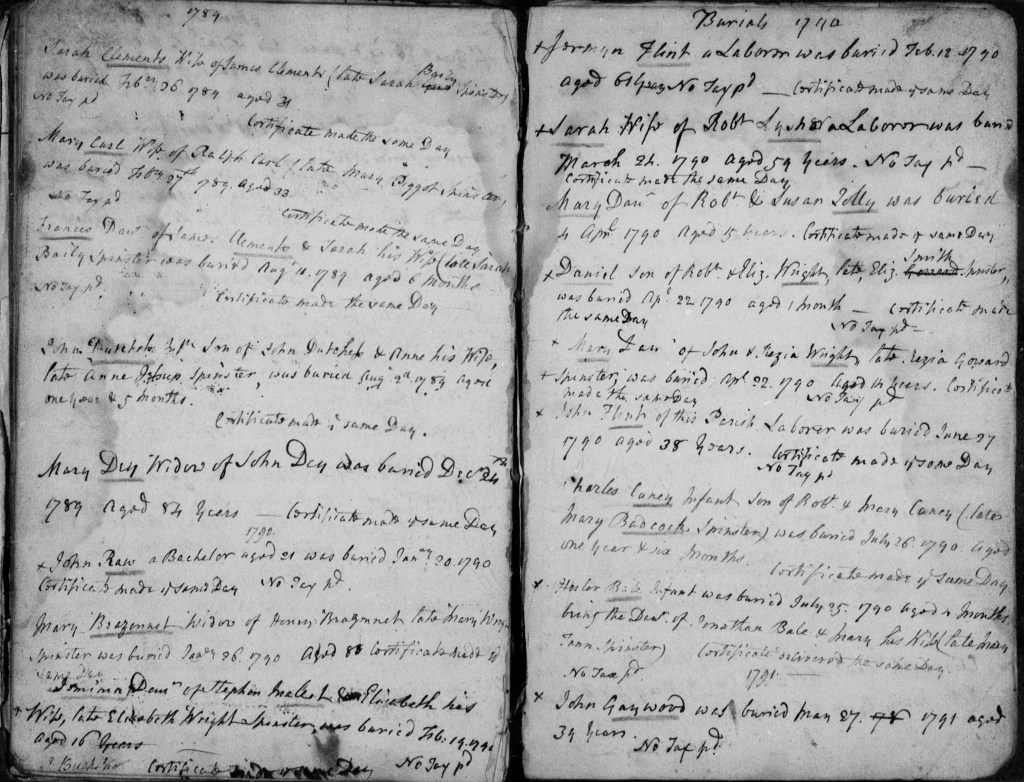 1789
Sarah Clements Wife of James Clements (late Sarah Baily Spinster)
was buried Feb. 26 1789 aged 31
No Tax pd
Certificate made the same Day
Mary Carl Wife of Ralph Carl (late Mary Piggot Spinster)
was buried Feb. 27th 1789. aged 33
No Tax pd
Certificate made the same Day
Frances Daur of James Clements & Sarah his Wife (late Sarah
Baily Spinster was buried Augt 1789 aged 6 months
No Tax pd.
Certificate made the same Day
John Son of John Dutchek & Anne his Wife,
late Anne Spinster, was buried Augt 2d 1789 aged
one year & 5 months.
Certificate made ye same Day.
Mary Dey Widow of John Dey was buried Decr 24
1789 aged 84 Years — Certificate made ye same Day
1790
x John Raw a Bachelor aged 21 was buried Jany 20. 1790
Certificate made ye same Day No Tax pd.
Mary Brazennet Widow of Henry Brazennet late Mary
Spinster was buried Jany 26. 1790 aged 86 Certificate made ye
same Day
Daur of Stephen & Elizabeth his
+ Wife, late Elizabeth Wright Spinster, was buried Feb. 19. 1790
aged 16 Years
Certificate made ye same Day No Tax pd
Burials 1790
+ Jermyn Flint a Laborer was buried Feb. 12 1790
aged No Tax pd — Certificate made ye same Day
+ Sarah Wife of Robt a Laborer was buried
March 24. 1790 aged 59 Years. No Tax pd —
Certificate made the same Day
Mary Daur of Robt & Susan Jolly was buried
4 Apr. 1790 aged 5 Years. Certificate made ye same Day
Smith
x Daniel Son of Robt & Eliz. Wright, late Eliz. Spinster,
was buried Apl 22 1790 aged 1 month — Certificate made
the same Day No Tax pd —
x Mary Daur of John & Kezia Wright, late Kezia
+ Spinster, was buried Apl 22. 1790 aged 14 Years. Certificate
made the same Day No Tax pd
x John Flint of this Parish Laborer was buried June 27
1790 aged 38 Years. Certificate made ye same Day
No Tax pd
Charles Caney Infant Son of Robt & Mary Caney (late
Mary Badcock Spinster) was buried July 26. 1790. aged
one year & six Months.
Certificate made ye same Day
x Hester Bale Infant was buried July 25. 1790 aged Months
being the Daur of Jonathan Bale & Mary his Wife (late Mary
Spinster) Certificate delivered the same Day
No Tax pd 1791 —
x John Gaywood was buried May 27. 1791 aged
39 Years.
No Tax pd.